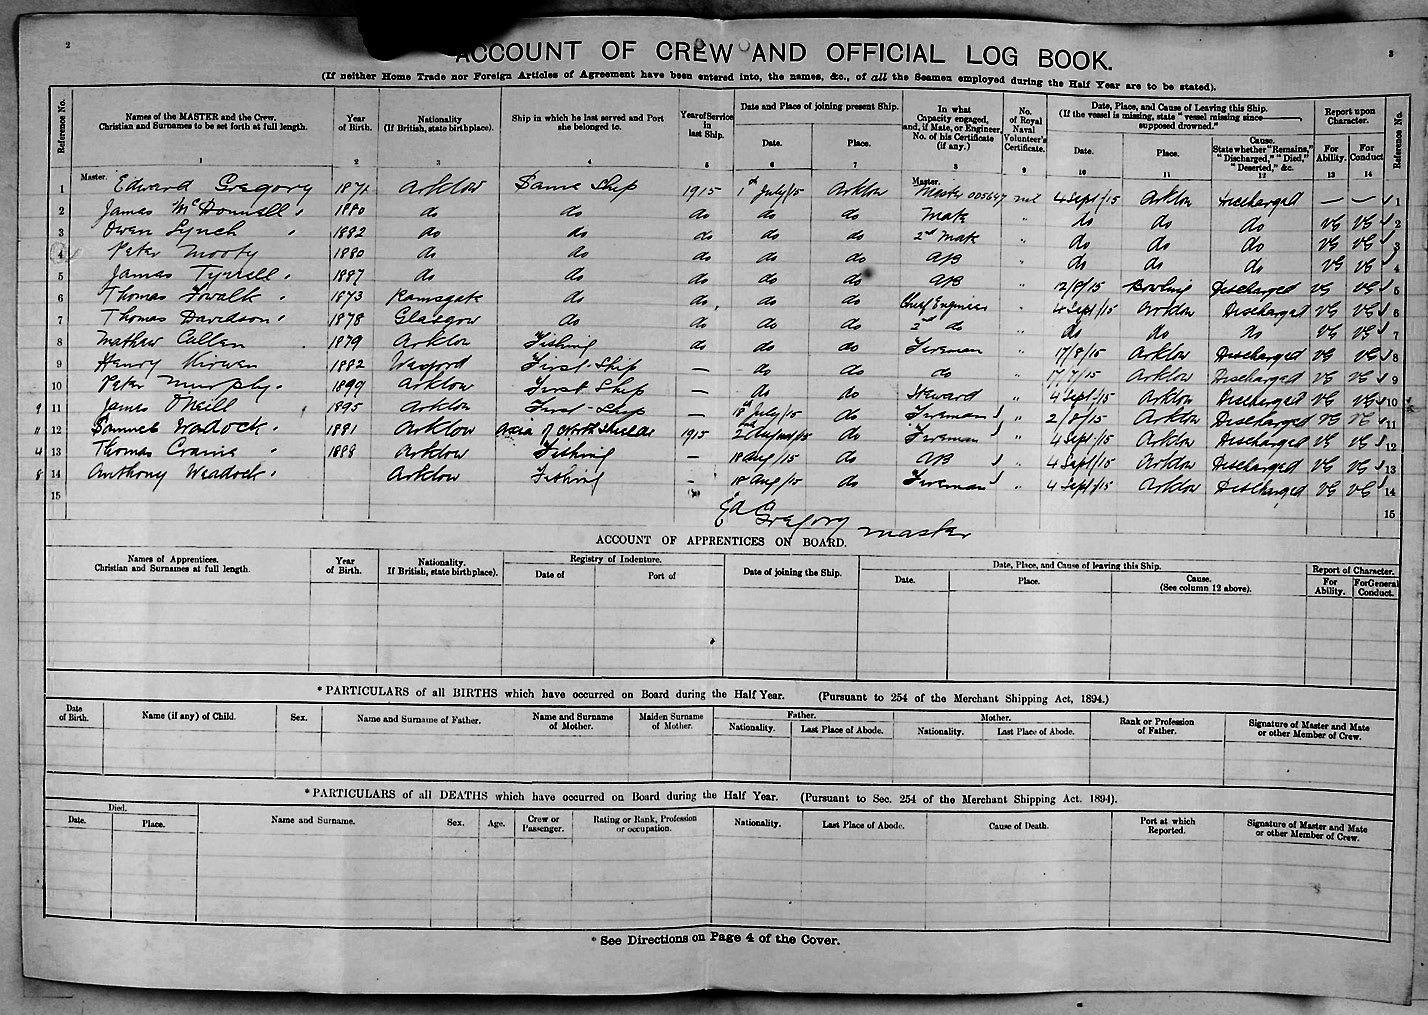 2
3
ACCOUNT OF CREW AND OFFICIAL LOG BOOK.
(If neither Home Trade nor Foreign Articles of Agreement have been entered into, the names, &c., of all the Seamen employed during the Half Year are to be stated).
Reference No. | Names of the MASTER and the Crew. Christian and Surnames to be set forth at full length. | Year of Birth. | Nationality (If British, state birthplace). | Ship in which he last served and Port she belonged to. | Year of Service in last Ship. | Date and Place of joining present Ship. | In what Capacity engaged, and, if Mate, or Engineer, No. of his Certificate (if any). | No. of Royal Naval Volunteer's Certificate. | Date, Place, and Cause of Leaving this Ship. (If the vessel is missing, state "vessel missing since supposed drowned." | Report upon Character. | Reference No.
Date. | Place. | Date. | Place. | Cause. State whether "Remains," "Discharged," "Died," "Deserted," &c. | For Ability. | For Conduct
1 2 3 4 5 6 7 8 9 10 11 12 13 14
1 Master. Edward Gregory 1871 Arklow Same Ship 1915 1st July/15 Arklow Master. Master 005647 nil 4 Sept/15 Arklow Discharged — — 1
2 James McDonnell 1880 do do do do do Mate " do do do VG VG 2
3 Owen Lynch 1882 do do do do do 2nd Mate " do do do VG VG 3
4 Peter Mooty 1880 do do do do do AB " do do do VG VG 4
5 James Tyrrell 1887 do do do do do AB " 12/8/15 Bowling Discharged VG VG 5
6 Thomas 1873 Ramsgate do do do do Chief Engineer " 4 Sept/15 Arklow Discharged VG VG 6
7 Thomas Davidson 1878 Glasgow do do do do 2nd do " do do do VG VG 7
8 Mathew Cullen 1879 Arklow Fishing do do do Fireman " 17/8/15 Arklow Discharged VG VG 8
9 Henry Kirwen 1882 Wexford First Ship — do do do " 17/7/15 Arklow Discharged VG VG 9
10 Peter Murphy 1899 Arklow First Ship — do do Steward 4 Sept/15 Arklow Discharged VG VG 10
9 11 James O'Neill 1895 Arklow First Ship — July/15 do Fireman " 2/8/15 Arklow Discharged VG VG 11
11 12 Samuel 1881 Arklow of North Shields 1915 2nd August/15 do Fireman " 4 Sept/15 Arklow Discharged VG VG 12
4 13 Thomas 1888 Arklow Fishing — 18 Aug/15 do AB " 4 Sept/15 Arklow Discharged VG VG 13
8 14 Anthony Weadock Arklow Fishing — 18 Aug/15 do Fireman " 4 Sept/15 Arklow Discharged VG VG 14
15 15
Ed Gregory Master
ACCOUNT OF APPRENTICES ON BOARD.
Names of Apprentices. Christian and Surnames at full length. | Year of Birth. | Nationality. If British, state birthplace). | Registry of Indenture. | Date of joining the Ship. | Date, Place, and Cause of leaving this Ship. | Report of Character.
Date of | Port of | Date. | Place. | Cause. (See column 12 above). | For Ability. | For General Conduct.
*PARTICULARS of all BIRTHS which have occurred on Board during the Half Year. (Pursuant to 254 of the Merchant Shipping Act, 1894.)
Date of Birth. | Name (if any) of Child. | Sex. | Name and Surname of Father. | Name and Surname of Mother. | Maiden Surname of Mother. | Father. | Mother. | Rank or Profession of Father. | Signature of Master and Mate or other Member of Crew.
Nationality. | Last Place of Abode. | Nationality. | Last Place of Abode.
*PARTICULARS of all DEATHS which have occurred on Board during the Half Year. (Pursuant to Sec. 254 of the Merchant Shipping Act. 1894).
Died. | Name and Surname. | Sex. | Age. | Crew or Passenger. | Rating or Rank, Profession or occupation. | Nationality. | Last Place of Abode. | Cause of Death. | Port at which Reported. | Signature of Master and Mate or other Member of Crew.
Date. | Place.
* See Directions on Page 4 of the Cover.